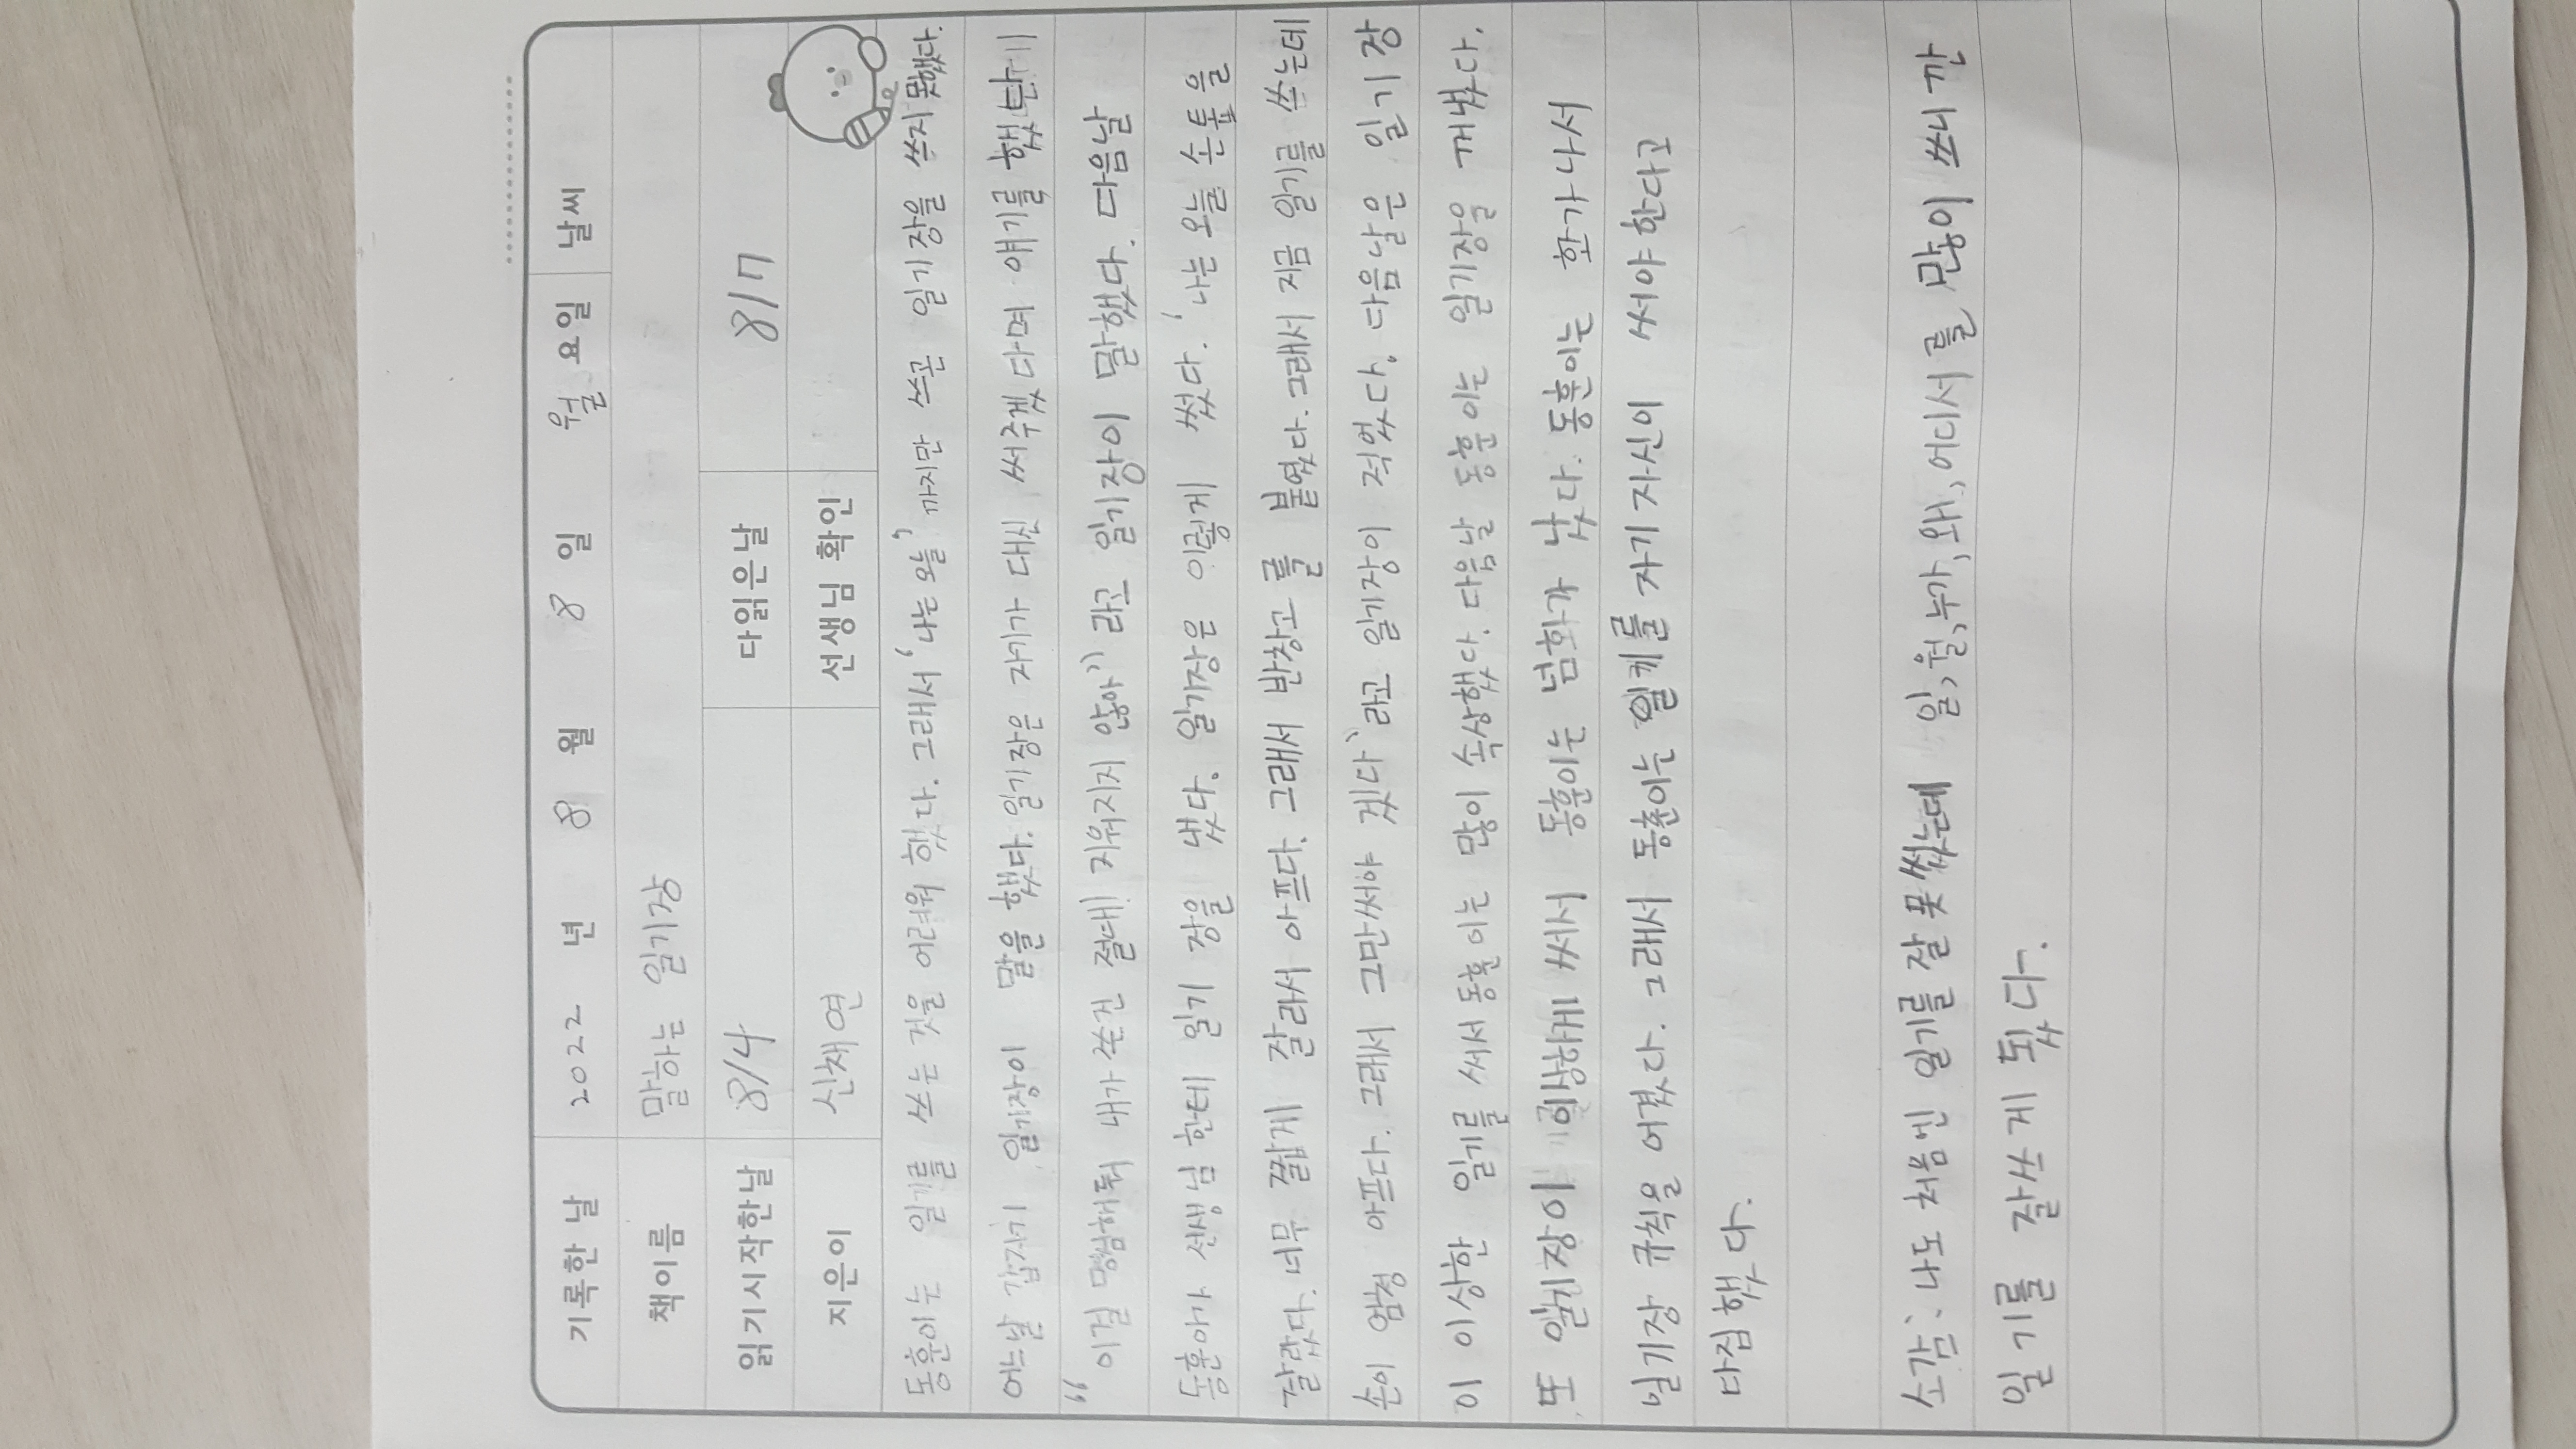 기록한 날 2022 년 8 월 8 일 월 요일 날씨
책이름 말하는 일기장
읽기시작한날 8/4 다읽은날 8/7
지은이 신채연 선생님 확인
동훈이는 일기를 쓰는 것을 어려워 했다. 그래서 ‘나는 오늘’ 까지만 쓰곤 일기장을 쓰지 못했다.
어느날 갑자기 일기장이 말을 했다. 일기장은 자기가 대신 써주겠다며 얘기를 했
“이걸 명심해둬 내가 쓴건 절대! 지워지지 않아” 라고 일기장이 말했다. 다음날
동훈아가 선생님 한테 일기 장을 냈다. 일기장은 이렇게 썼다. ‘나는 오늘 손톺을
잘랐다. 너무 짧게 잘라서 아프다. 그래서 반창고를 붙였다. 그래서 지금 일기를 쓰는데
손이 엄청 아프다. 그래서 그만써야 겠다’라고 일기장이 적었다. 다음날은 일기장
이 이상한 일기를 써서 동훈이는 많이 속상했다. 다음날 동훈이는 일기장을 꺼냈다.
또 일기장이 이상하게 써서 동훈이는 넘화가 났다. 동훈이는 화가나서
일기장 규칙을 어겼다. 그래서 동훈이는 일기를 자기 자신이 써야 한다고
다집했다.
소감: 나도 처음엔 일기를 잘 못 썼는데 일, 월, 누가, 왜, 어디서 를 많이 쓰니 깐
일기를 잘쓰게 됬다.